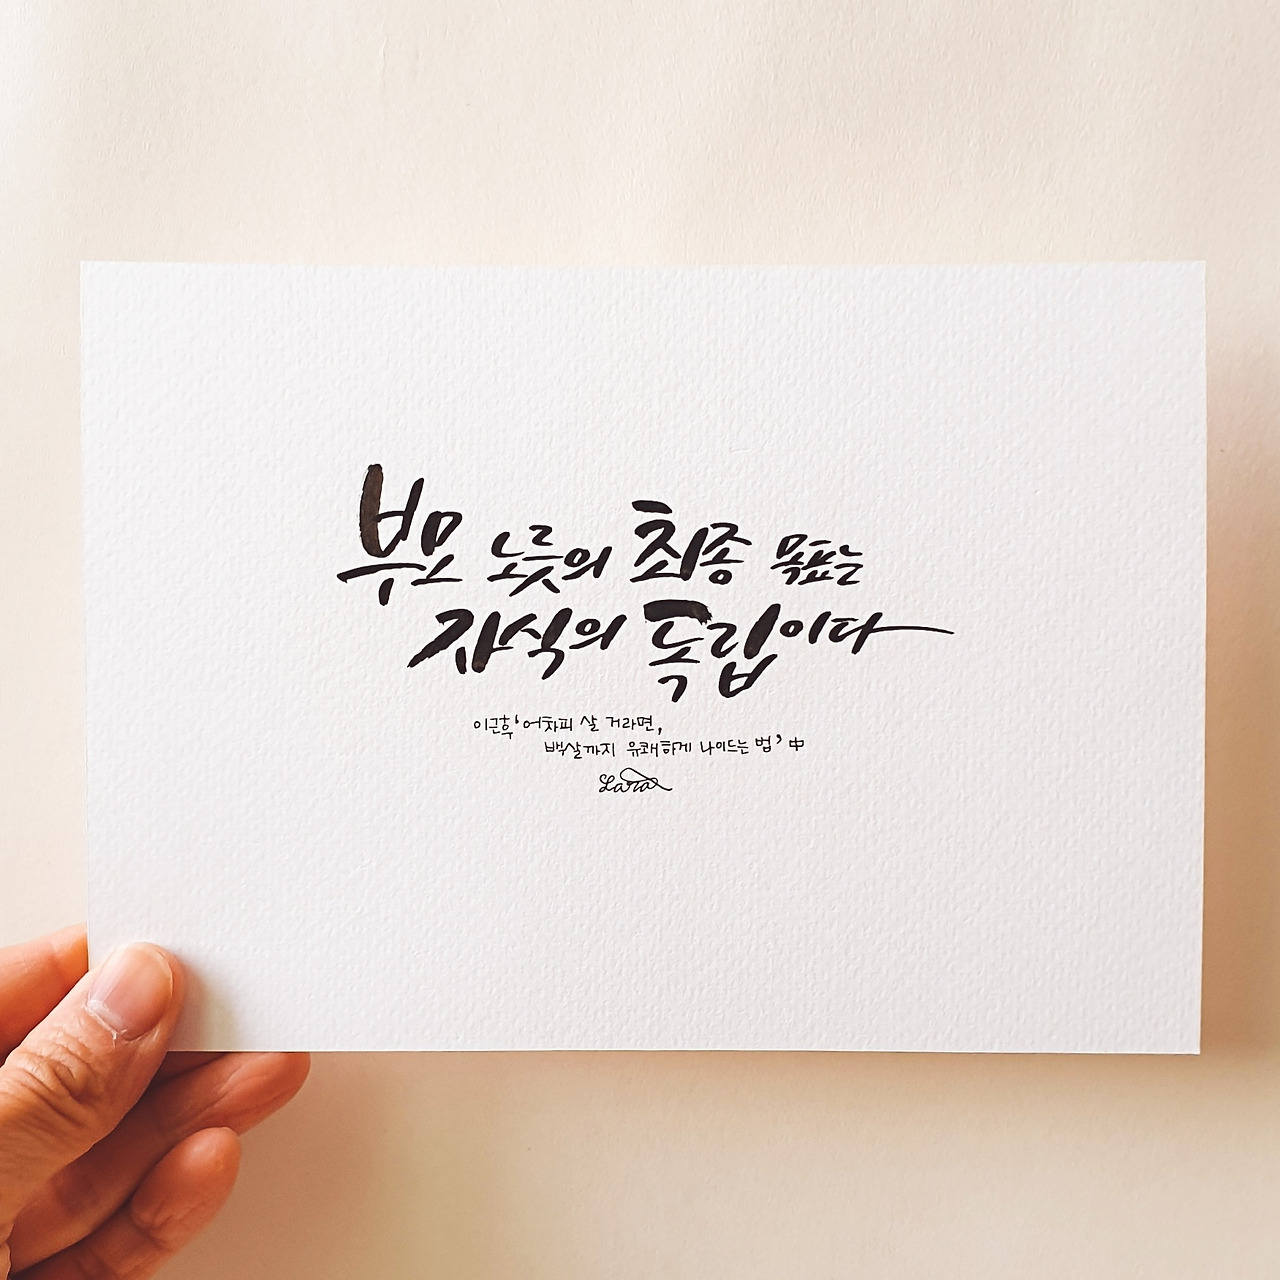 부모 노릇의 최종 목표는
자식의 독립이다
이근후 '어차피 살 거라면,
백살까지 유쾌하게 나이드는 법' 中
Lara